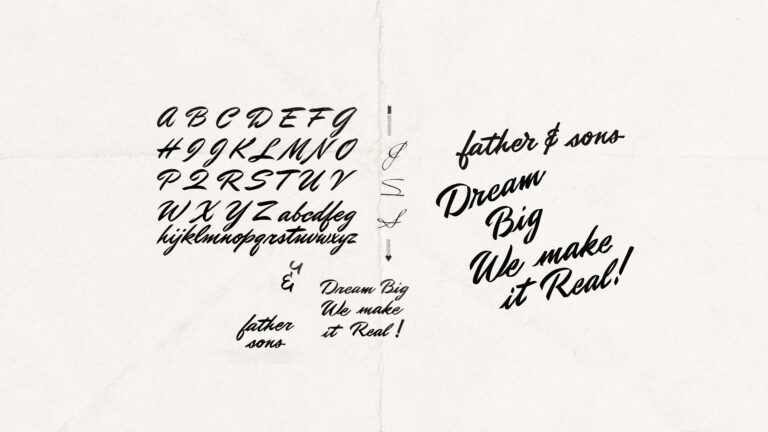 A B C D E F G
H I J K L M N O
P Q R S T U V
W X Y Z abcdfeg
hijklmnopqrstuvwxyz
&
father
sons
Dream Big
We make
it Real!
S
father & sons
Dream
Big
We make
it Real!